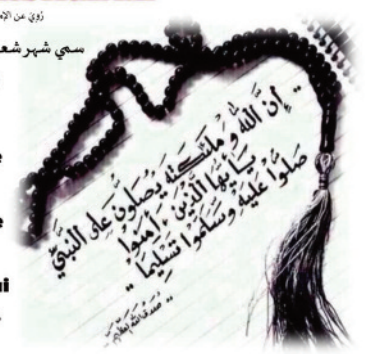 رُوِيَ عن الإم
سمي شهر شع
إِنَّ اللَّهَ وَمَلَٰئِكَتَهُ يُصَلُّونَ عَلَى النَّبِيِّ
يَا أَيُّهَا الَّذِينَ آمَنُوا
صَلُّوا عَلَيْهِ وَسَلِّمُوا تَسْلِيمًا
صدق الله العظيم
e
e
ui